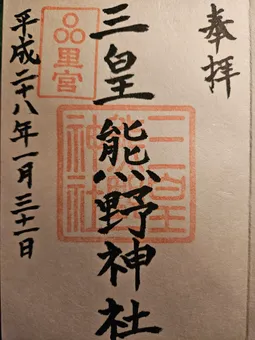 奉拝
三皇熊野神社
三皇
熊野
神社
里宮
平成二十八年一月三十一日